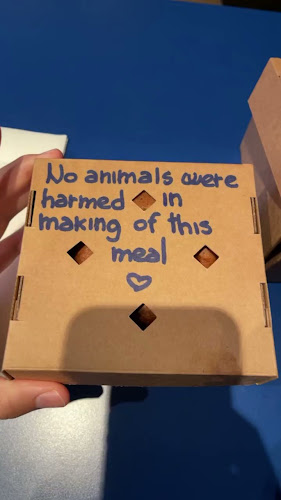 No animals were
harmed in
making of this
meal